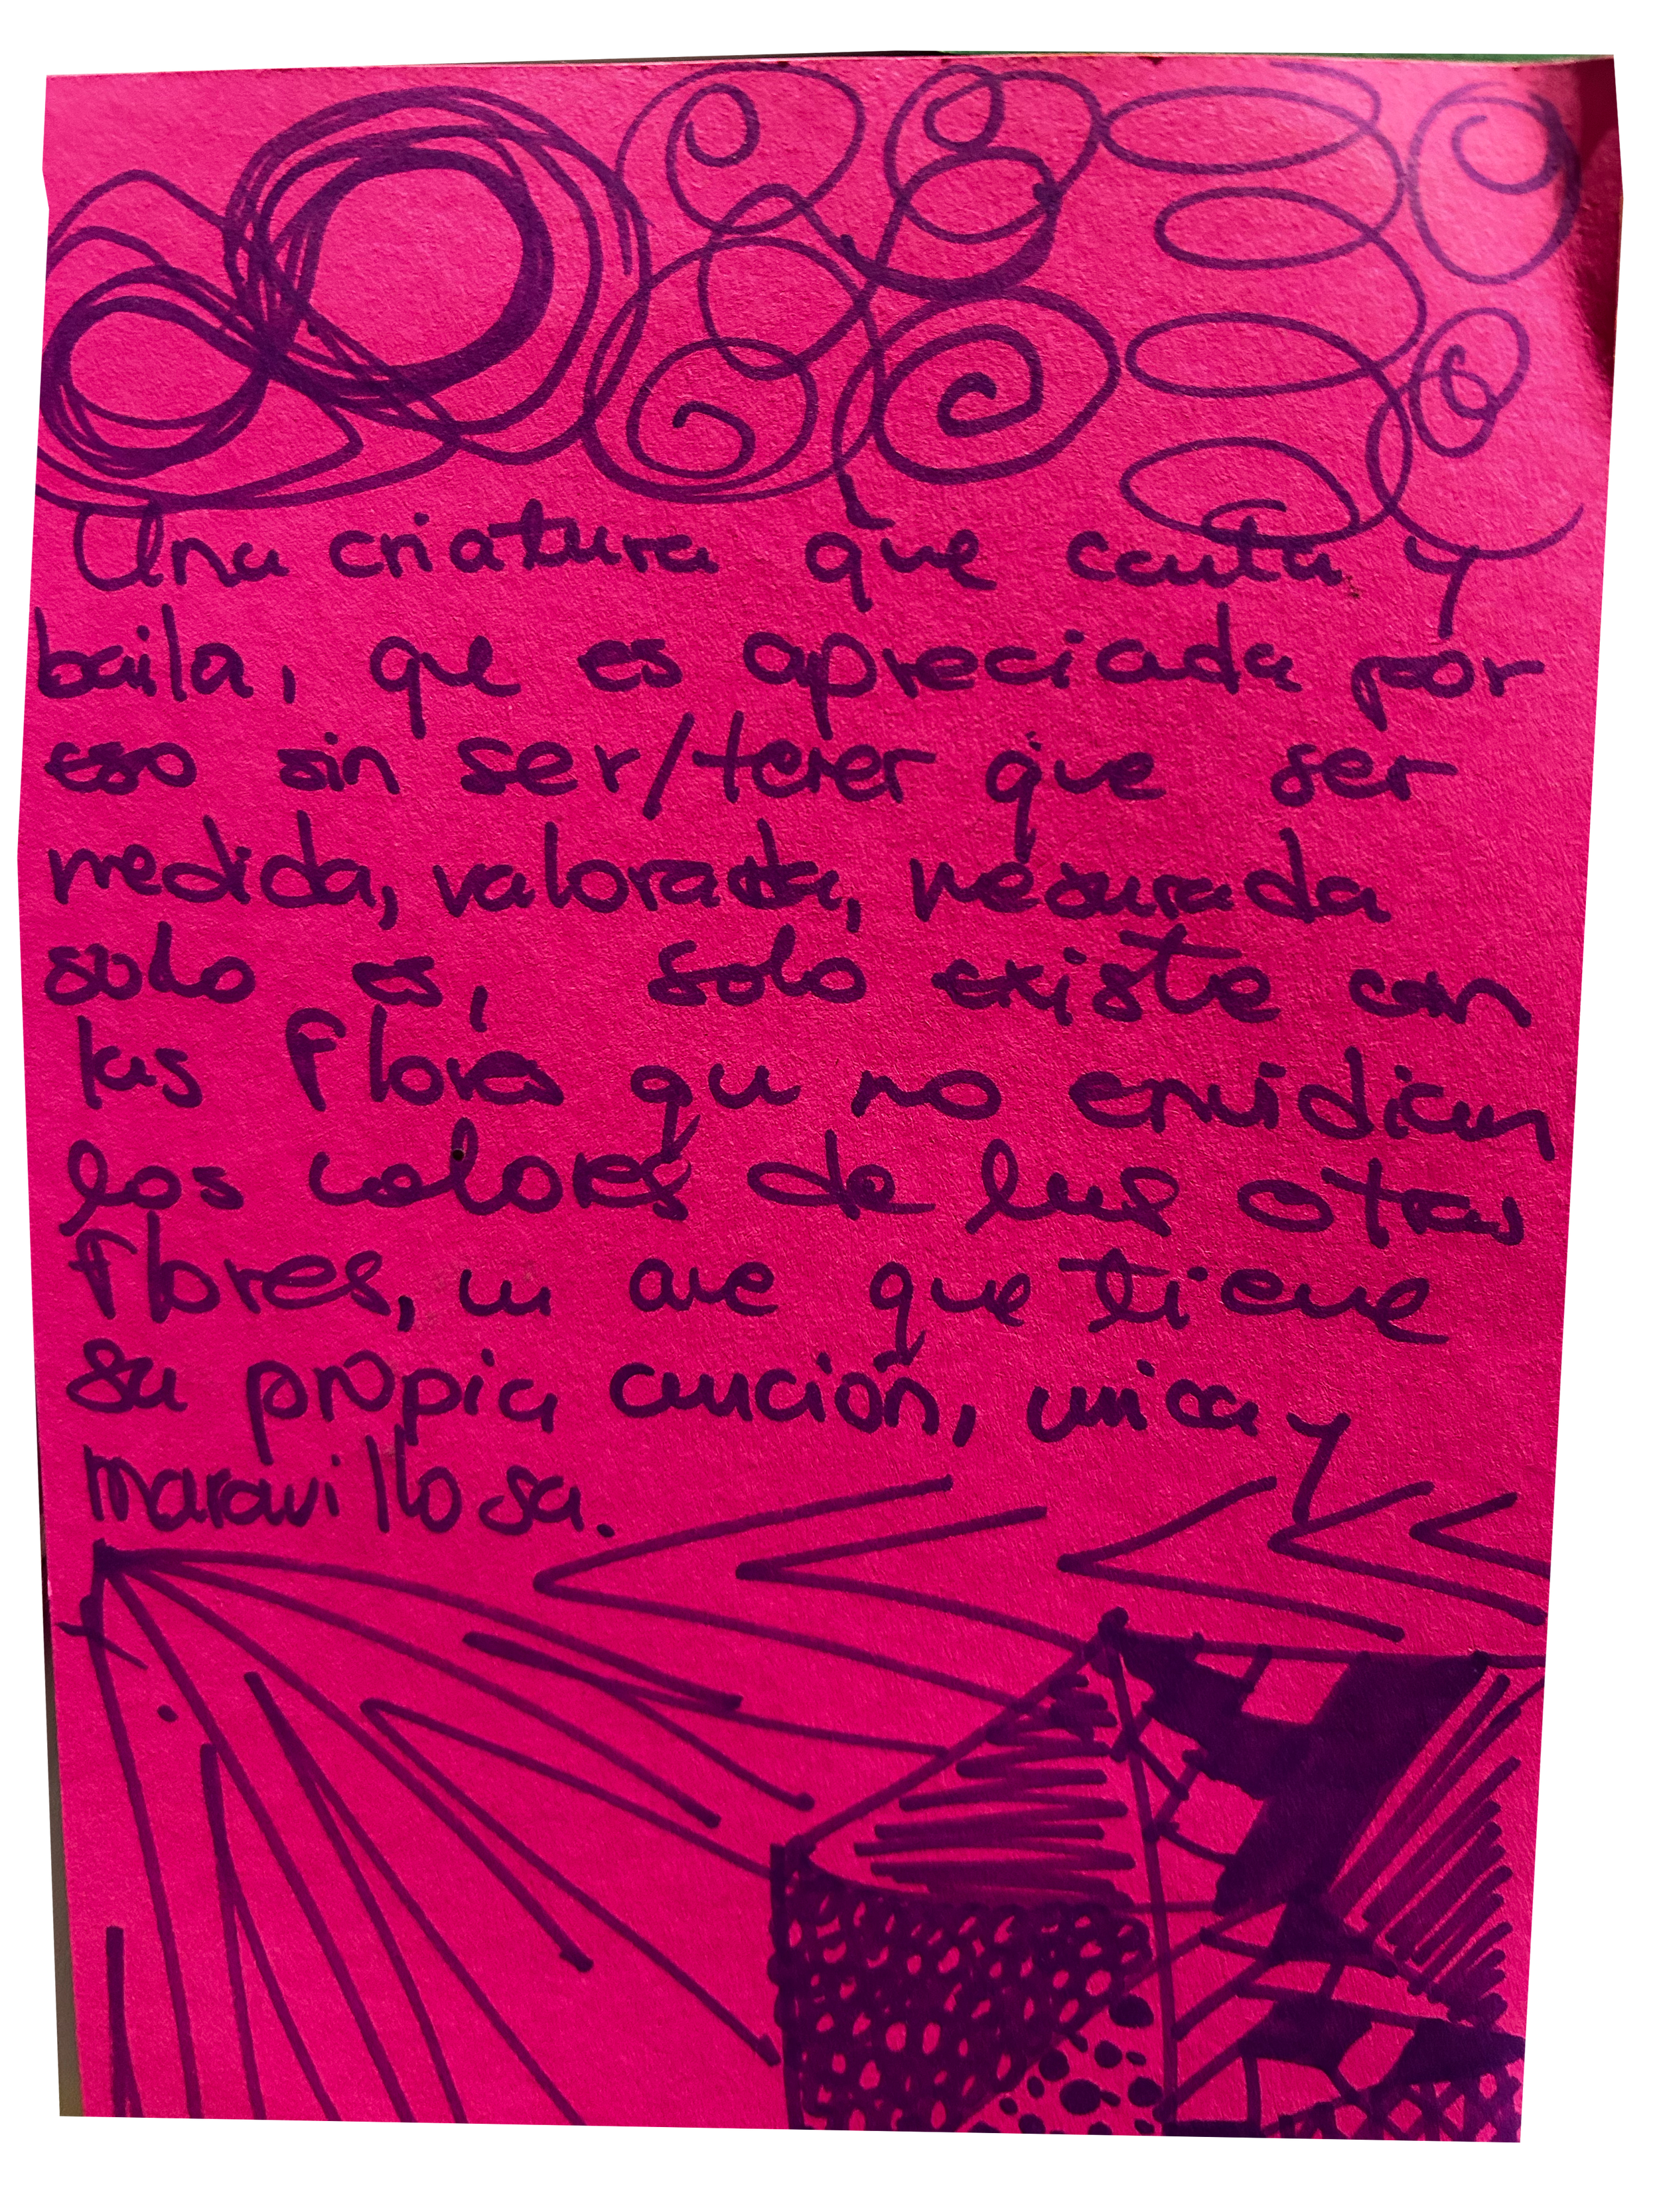 Una criatura que canta y
baila, que es apreciada por
eso sin ser/tener que ser
medida, valorada, mesurada
solo es, solo existe con
las flores qu no envidian
los colores de las otras
flores, un ave que tiene
su propia canción, unica y
maravillosa.